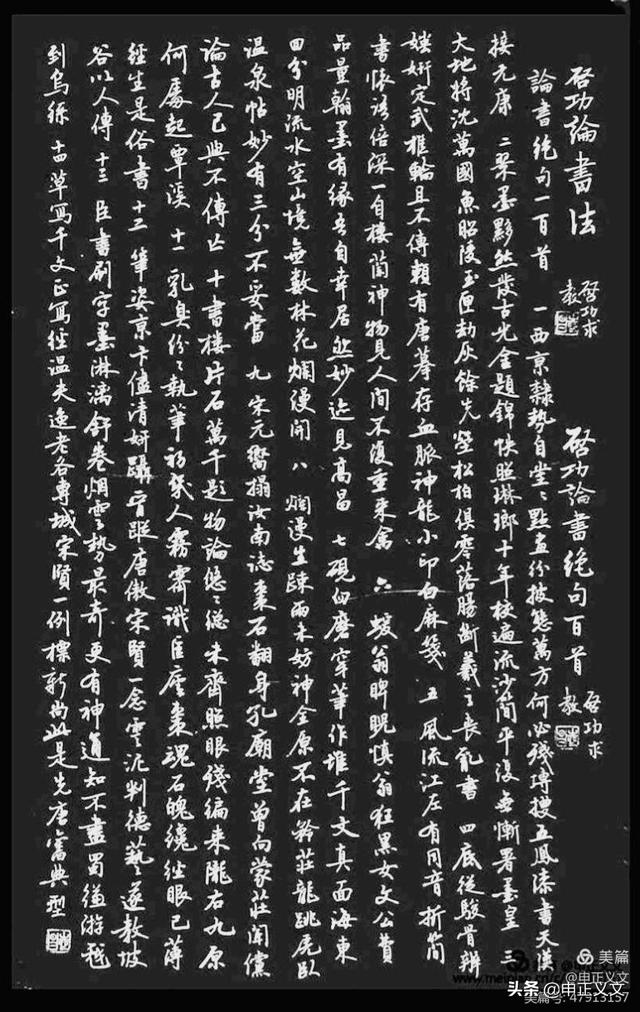 啓功論書法 啓功求教 啓功論書絕句百首 啓功求教
論書絕句一百首 一 西京隸勢自堂〻 點畫紛披態萬方 何必殘磚搜五鳳 漆書天漢
接元康 二 翠墨黟然發古光 金題錦帙照琳瑯 十年校遍流沙簡 平復無慚署墨皇 三
大地將沈萬國魚 昭陵玉匣劫灰餘 先塋松柏俱零落 腸斷羲之喪亂書 四 底從駿骨辨
媸妍 定武椎輪且不傳 賴有唐摹存血脈 神龍小印白麻箋 五 風流江左有同音 折簡
書懷語倍深 一自樓蘭神物見 人間不復重來禽 六 蝯翁睥睨慎翁狂 黑女文公費
品量 翰墨有緣吾自幸 居然妙迹見高昌 七 硯臼磨穿筆作堆 千文真面海東
回 分明流水空山境 無數林花爛漫開 八 爛漫生疎兩未妨 神全原不在矜莊 龍跳虎臥
溫泉帖 妙有三分不妥當 九 宋元嚮搨汝南誌 棗石翻身孔廟堂 曾向蒙莊聞儻
論 古人已與不傳亡 十 書樓片石萬千題 物論悠〻總未齊 照眼殘編來隴右 九原
何處起覃溪 十一 乳臭紛〻執筆初 幾人霧霽識匡廬 棗魂石魄纔經眼 已薄
經生是俗書 十二 筆姿京卞儘清妍 躡晉蹤唐傲宋賢 一念雲泥判德藝 遂教坡
谷以人傳 十三 臣書刷字墨淋漓 舒卷烟雲勢最奇 更有神通知不盡 蜀縑游戲
到烏絲 十四 草寫千文正寫經 溫夫逸老各專城 宋賢一例標新尚 此是先唐舊典型
美篇
@申正义文
美篇号: 47913157
头条 @申正义文